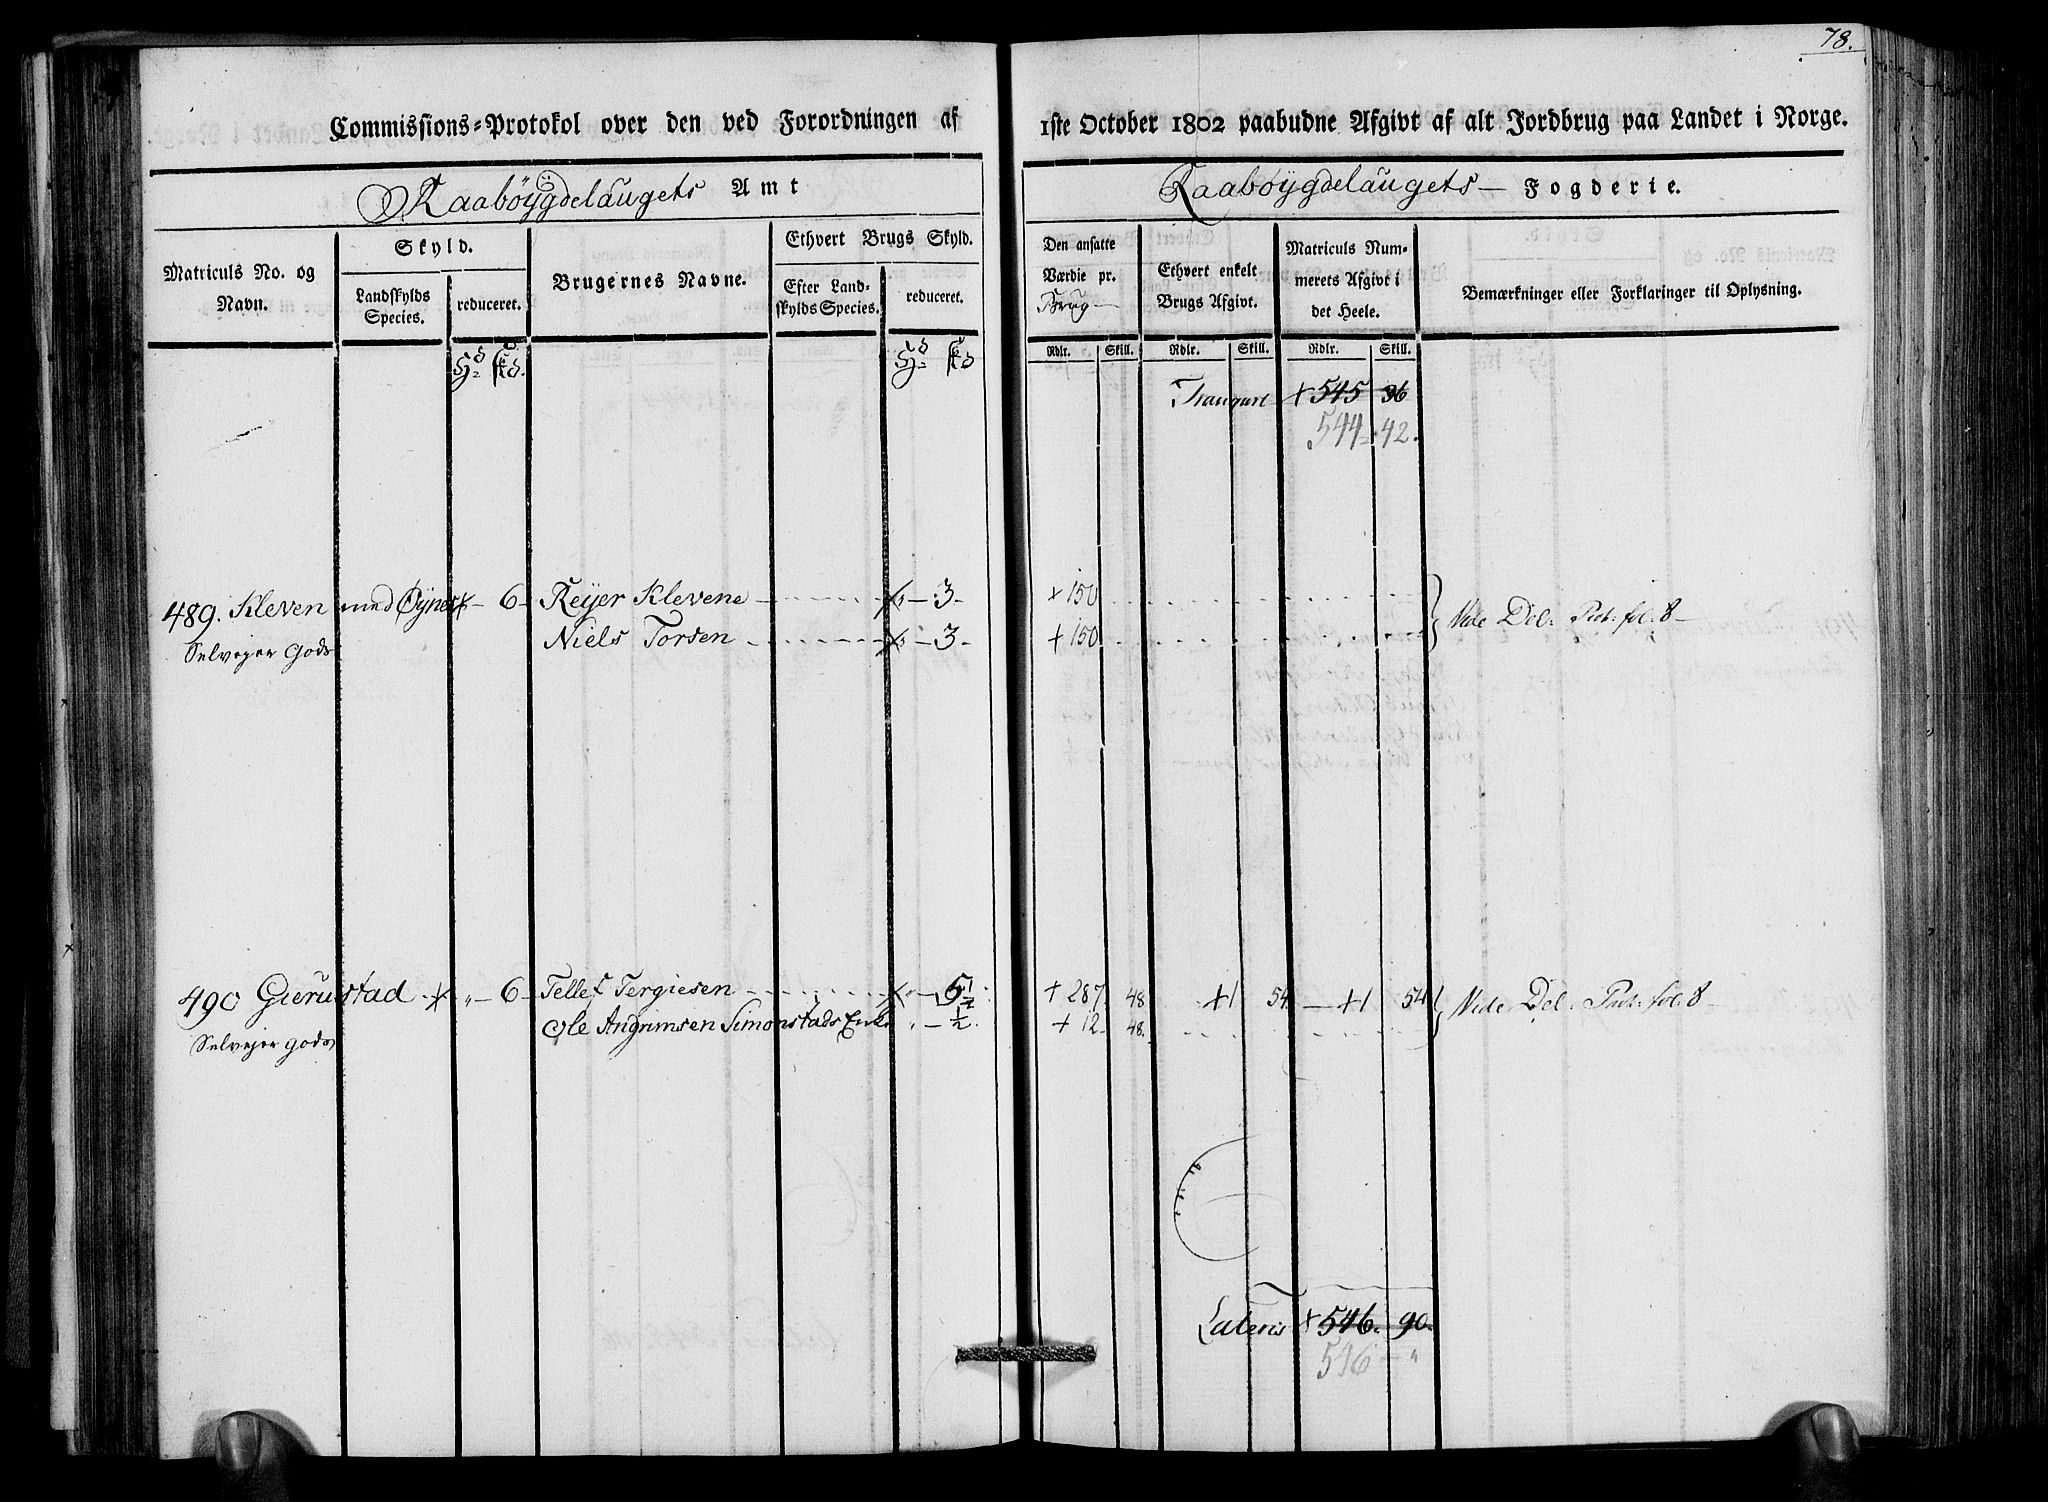 78.
Commissions-Protokol over den ved Forordningen af 1ste October 1802 paabudne Afgivt af alt Jordbrug paa Landet i Norge.
Raabøygdelaugets Amt
Raabøygdelaugets Fogderie.
Matriculs No. og Navn.
Skyld.
Landskylds Species.
reduceret.
Brugernes Navne.
Ethvert Brugs Skyld.
Efter Landskylds Species.
reduceret.
Den ansatte Værdie pr. Brug
Ethvert enkelt Brugs Afgivt.
Matriculs Nummerets Afgivt i det Heele.
Bemærkninger eller Forklaringer til Oplysning.
Rdlr. Skill. Rdlr. Skill. Rdlr. Skill.
Transport + 545 36
544 - 42.
489. Kleven med Øynes - 6 - Reyer Klevene - 3 - + 150
Vide Del: Prot: fol: 8 -
Selvejer Gods Niels Torsen - 3 - + 150
490 Gierustad " - 6 - Tellef Tergiesen " - 5 1/2 + 287 48 +1 54 +1 54 Vide Del: Prot: fol: 8 -
Ole Angrimsen Simonstads Enke " - 1/2 . + 12 48.
Selvejer gods
Lateris + 546. 90.
546 - "